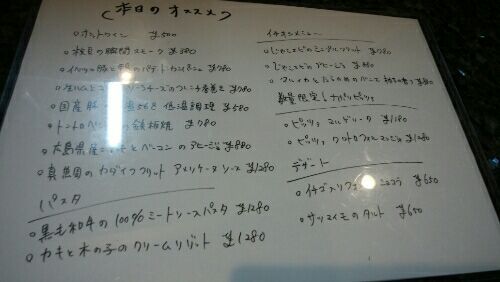 (本日のオススメ)
○ホットワイン ¥500
○枝豆の瞬間スモーク ¥380
○イベリコ豚と鴨のパテドカンパーニュ ¥780
○生ハムと
○国産豚の 低温調理 ¥580
○トントロベーコンの鉄板焼 ¥780
○広島県産 とベーコンのアヒージョ ¥880
○真 のカダイフフリット アメリケーヌソース ¥1280
パスタ
○黒毛和牛の100%ミートソースパスタ ¥1280
○カキと木の子のクリームリゾット ¥1280
イチオシメニュー
○じゃこえびの フリット ¥780
○じゃこえびのアヒージョ ¥880
○ヤリイカと のペンネ
数量限定!ナポリピッツァ
○ピッツァ マルゲリータ ¥1180
○ピッツァ クワトロフォルマッジ ¥1280
デザート
○イチゴ ショコラ ¥650
○サツマイモのタルト ¥650